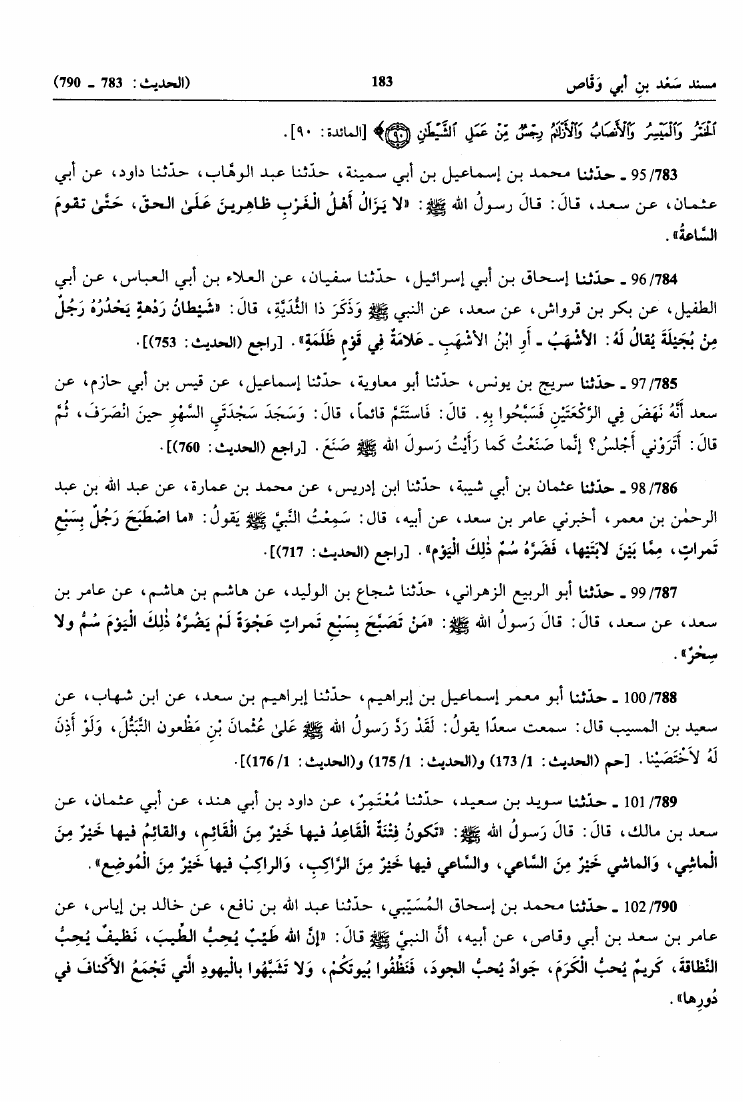 مسند سَعْد بنِ أبي وَقَّاص 183 (الحديث: 783 ـ 790)
اَلْخَمْرُ وَالْمَيْسِرُ وَالْأَنصَابُ وَالْأَزْلَامُ رِجْسٌ مِّنْ عَمَلِ الشَّيْطَانِ ﴿٩٠﴾ [المائدة: ٩٠].
95/783 ـ حدّثنا محمد بن إسماعيل بن أبي سمينة، حدّثنا عبد الوهَّاب، حدّثنا داود، عن أبي
عثمان، عن سعد، قالَ: قالَ رسولُ الله ﷺ: «لا يَزَالُ أَهْلُ الْغَرْبِ ظَاهِرِينَ عَلَىٰ الحقِّ، حَتَّىٰ تقومَ
السَّاعةُ».
96/784 ـ حدّثنا إسحاق بن أبي إسرائيل، حدّثنا سفيان، عن العلاء بن أبي العباس، عن أبي
الطفيل، عن بكر بن قرواش، عن سعد، عن النبي ﷺ وَذَكَرَ ذا الثُّدَيَّةِ، قالَ: «شَيْطانُ رَدْهةٍ يَحْدُرُهُ رَجُلٌ
مِنْ بُجَيْلَةَ يُقالُ لَهُ: الأشْهَبُ ـ أَوِ ابْنُ الأشْهَبِ ـ عَلامَةٌ فِي قَوْمٍ ظَلَمَةٍ». [راجع (الحديث: 753)].
97/785 ـ حدّثنا سريج بن يونس، حدّثنا أبو معاوية، حدّثنا إسماعيل، عن قيس بن أبي حازم، عن
سعد أَنَّهُ نَهَضَ فِي الرَّكْعَتَيْنِ فَسَبَّحُوا بِهِ. قالَ: فَاسْتَتَمَّ قائماً، قالَ: وَسَجَدَ سَجْدَتَيِ السَّهْوِ حينَ انْصَرَفَ، ثُمَّ
قالَ: أَتَرَوْنِي أَجْلسُ؟ إِنَّما صَنَعْتُ كَما رَأَيْتُ رَسولَ الله ﷺ صَنَعَ. [راجع (الحديث: 760)].
98/786 ـ حدّثنا عثمان بن أبي شيبة، حدّثنا ابن إدريس، عن محمد بن عمارة، عن عبد الله بن عبد
الرحمٰن بن معمر، أخبرني عامر بن سعد، عن أبيه، قال: سَمِعْتُ النَّبِيَّ ﷺ يَقولُ: «ما اصْطَبَحَ رَجُلٌ بِسَبْعِ
تَمراتٍ، مِمَّا بَيْنَ لابَتَيْها، فَضَرَّهُ سُمٌّ ذٰلِكَ الْيَوْمَ». [راجع (الحديث: 717)].
99/787 ـ حدّثنا أبو الربيع الزهراني، حدّثنا شجاع بن الوليد، عن هاشم بن هاشم، عن عامر بن
سعد، عن سعد، قالَ: قالَ رَسولُ الله ﷺ: «مَنْ تَصَبَّحَ بِسَبْعِ تَمراتٍ عَجْوَةً لَمْ يَضُرَّهُ ذٰلِكَ الْيَوْمَ سُمٌّ ولا
سِحْرٌ».
100/788 ـ حدّثنا أبو معمر إسماعيل بن إبراهيم، حدّثنا إبراهيم بن سعد، عن ابن شهاب، عن
سعيد بن المسيب قال: سمعت سعداً يقولُ: لَقَدْ رَدَّ رَسولُ الله ﷺ عَلىٰ عُثْمانَ بْنِ مَظْعون التَّبَتُّلَ، وَلَوْ أَذِنَ
لَهُ لاَخْتَصَيْنا. [حم (الحديث: 173/1) و(الحديث: 175/1) و(الحديث: 176/1)].
101/789 ـ حدّثنا سويد بن سعيد، حدّثنا مُعْتَمِرٌ، عن داود بن أبي هند، عن أبي عثمان، عن
سعد بن مالك، قالَ: قالَ رَسولُ الله ﷺ: «تَكونُ فِتْنَةٌ الْقَاعِدُ فيها خَيْرٌ مِنَ الْقَائِمِ، والقائِمُ فيها خَيْرٌ مِنَ
الْماشِي، وَالماشي خَيْرٌ مِنَ السَّاعي، والسَّاعي فيها خَيْرٌ مِنَ الرَّاكِبِ، وَالراكِبُ فيها خَيْرٌ مِنَ الْمُوضِعِ».
102/790 ـ حدّثنا محمد بن إسحاق المُسَيَّبي، حدّثنا عبد الله بن نافع، عن خالد بن إياس، عن
عامر بن سعد بن أبي وقاص، عن أبيه، أنَّ النبيَّ ﷺ قالَ: «إِنَّ الله طَيِّبٌ يُحِبُّ الطِّيبَ، نَظيفٌ يُحِبُّ
النَّظافَةَ، كَريمٌ يُحبُّ الْكَرَمَ، جَوادٌ يُحبُّ الجودَ، فَنَظِّفُوا بُيوتَكُمْ، وَلا تَشَبَّهُوا بالْيهودِ الَّتي تَجْمَعُ الأَكْنافَ في
دُورِها».